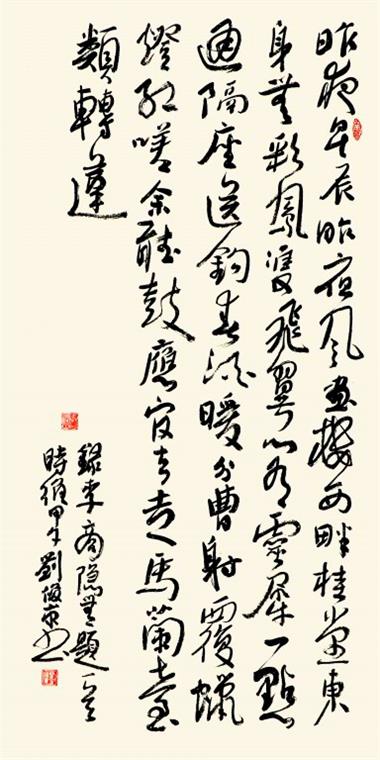 昨夜星辰昨夜風畫樓西畔桂堂東
身無彩鳳雙飛翼心有靈犀一點
通隔座送鉤春酒暖分曹射覆蠟
燈紅嗟余聽鼓應官去走馬蘭臺
類轉蓬
錄李商隱無題一首
時維甲午劉俊京書